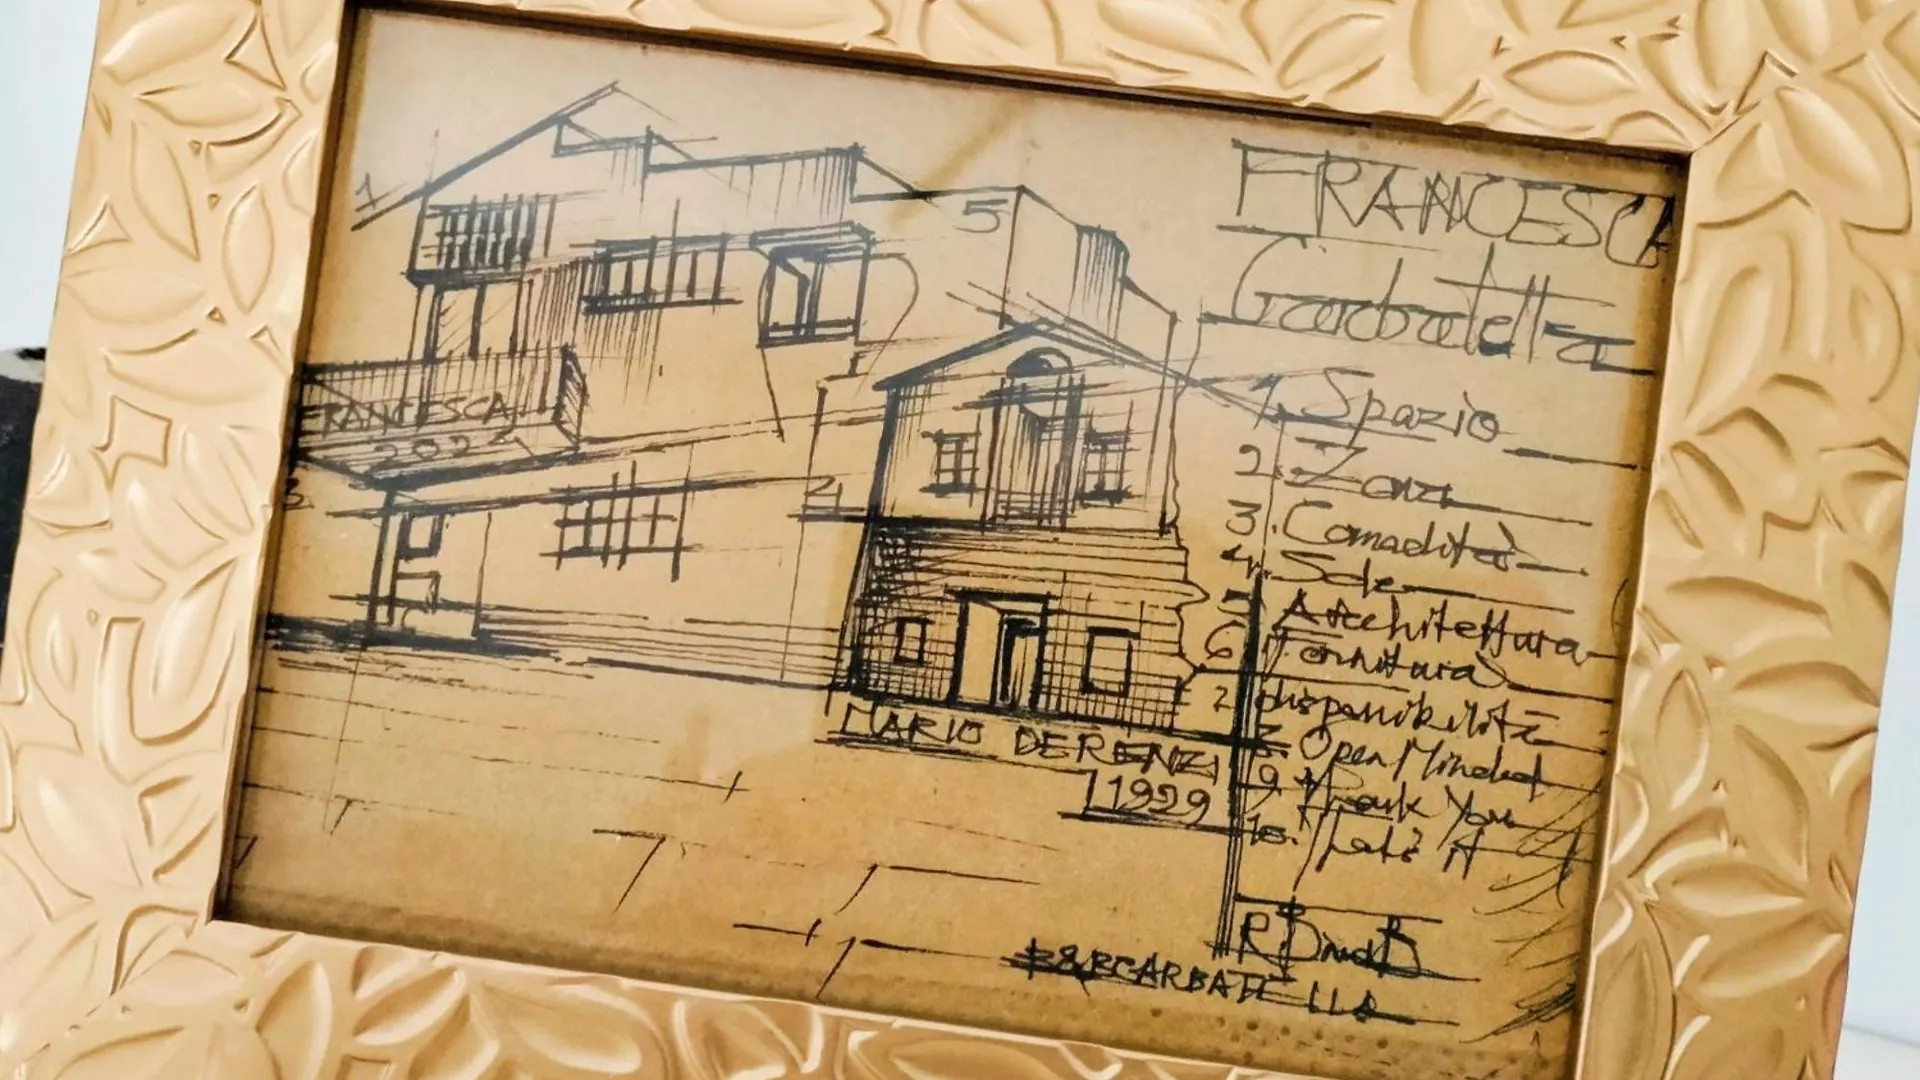 1
5
FRANCESCA
2022
3
4
MARIO DE RENZI
1929
FRANCESCA
Garbatella
1. Spazio
2. Zona
3. Comodità
4. Sole
5 Architettura
6 Fornitura
7 disponibilità
8. Open Minded
9. Thank You
10. That's it
B&BGARBATELLA